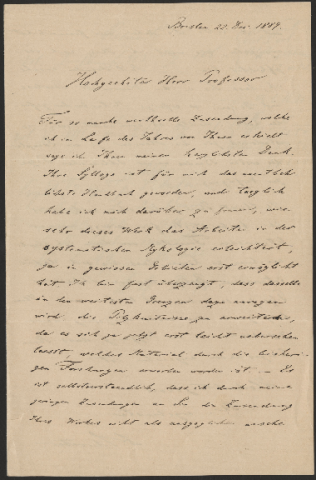 Breslau 25. Dez. 1889.
Hochgeehrter Herr Professor
Für so manche werthvolle Zusendung, welche
ich im Laufe des Jahres von Ihnen erhielt
sage ich Ihnen meinen herzlichsten Dank.
Ihre Sylloge ist für mich das
Handbuch geworden, und täglich
habe ich mich darüber zu freuen, wie
sehr dieses Werk das Arbeiten in der
systematischen Mykologie erleichtert,
ja in gewissen Gebieten erst ermöglicht
hat. Ich bin fest überzeugt, dass dasselbe
in den weitesten Kreisen dazu anregen
wird die Pilzkenntnisse zu erweitern,
da es sich ja jetzt erst leicht übersehen
laesst, welches Material durch die bisheri-
gen Forschungen erworben worden ist. Es
ist selbstverständlich, dass ich durch meine
geringen Zusendungen an Sie die Zusendung
Ihres Werkes nicht als ausgeglichen ansehe